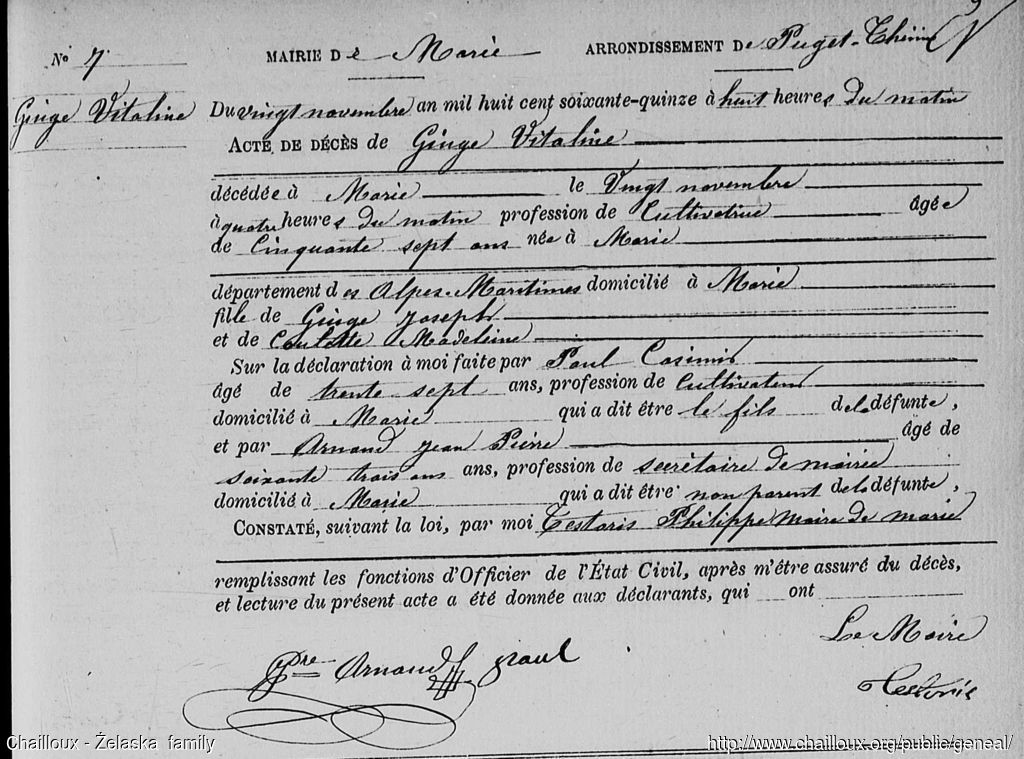 No 7 MAIRIE De Marie ARRONDISSEMENT De Puget-Théniers
Ginge Vitaline
Du vingt novembre an mil huit cent soixante-quinze à huit heures du matin
ACTE DE DÉCÈS de Ginge Vitaline
décédée à Marie le Vingt novembre
à quatre heures du matin profession de Cultivatrice âgée
de Cinquante sept ans née à Marie
département des Alpes-Maritimes domicilié à Marie
fille de Ginge Joseph
et de Coulette Madeleine
Sur la déclaration à moi faite par Paul Casimir
âgé de trente sept ans, profession de Cultivateur
domicilié à Marie qui a dit être le fils de la défunte,
et par Arnaud Jean Pierre âgé de
soixante trois ans ans, profession de secrétaire de mairie
domicilié à Marie qui a dit être non parent de la défunte,
CONSTATÉ, suivant la loi, par moi Testoris Philippe Maire de Marie
remplissant les fonctions d'Officier de l'État Civil, après m'être assuré du décès,
et lecture du présent acte a été donnée aux déclarants, qui ont
Le Maire
Jpre Arnaud Paul
Testoris
Chailloux - Żelaska family http://www.chailloux.org/public/geneal/